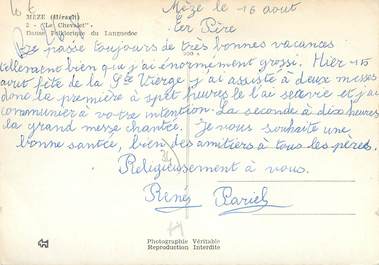 MEZE (Hérault)
2 - "Le Chevalet"
Danse Folklorique du Languedoc
Mèze le 16 aout
Cer Père
Je passe toujours de très bonnes vacances
tellement bien que j'ai énormément grossi. Hier 15
août fête de la Ste Vierge j'ai assisté à deux messes
donc la première à spet heures je l'ai servie et j'ai
communier à votre intention. La seconde à dix heures
la grand messe chantée. Je vous souhaite une
bonne santée, bien des amitiers à tous les pères.
Religieusement à vous.
René Pariel
Photographie Véritable
Reproduction Interdite